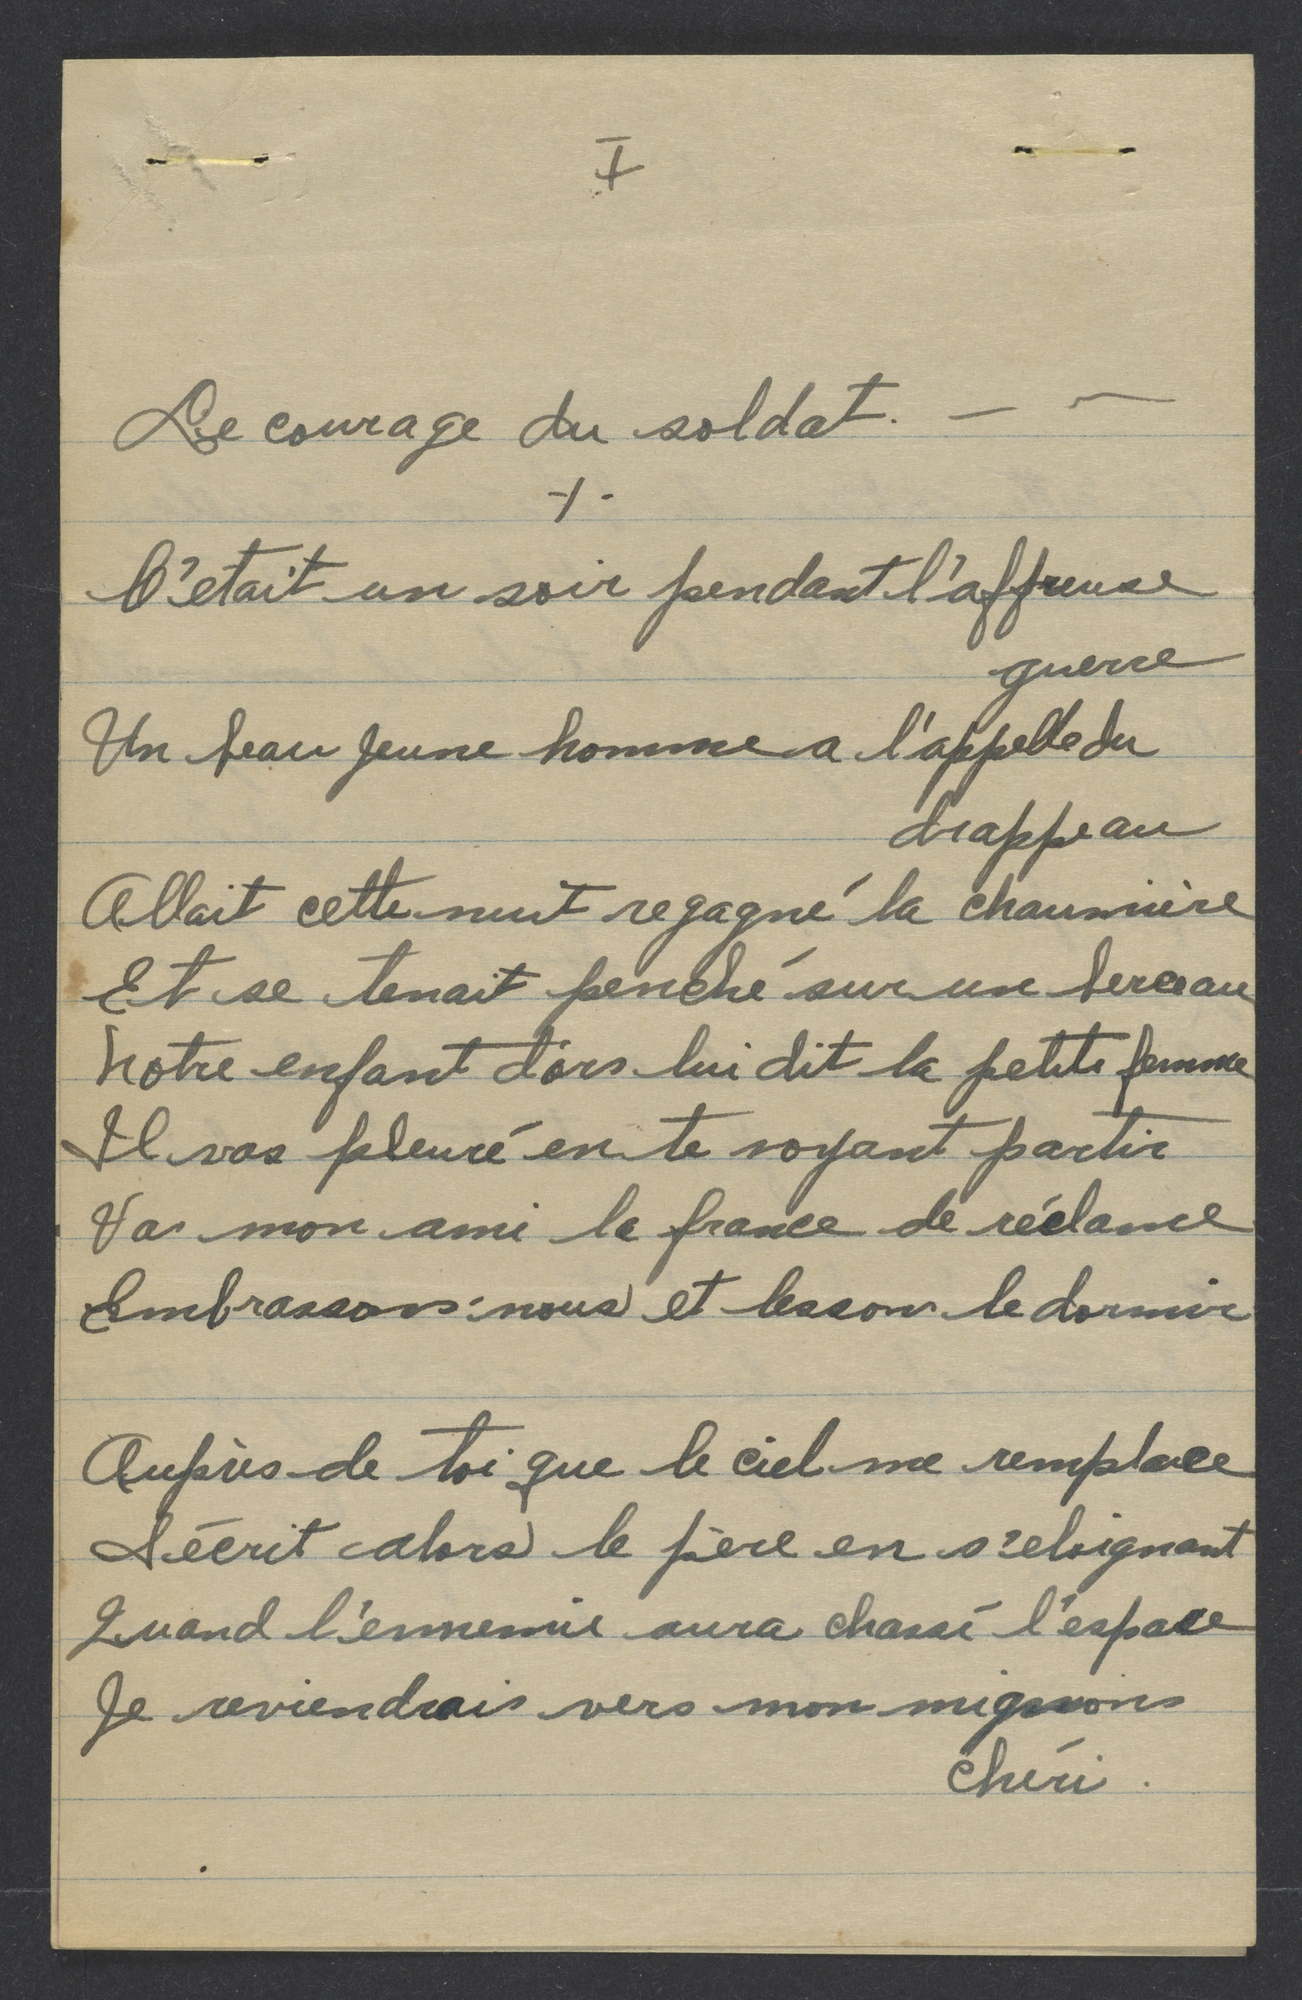 I
Le courage du soldat. — —
C'etait un soir pendant l'affreuse
guerre
Un beau jeune homme a l'appelle du
drappeau
Allait cette nuit regagné la chaumière
Et se tenait penché sur un berceau
Notre enfant dors lui dit la petite femme
Il vas pleuré en te voyant partir
Va mon ami la france de réclame
Embrassons-nous et lesson le dormir
Auprès de toi que le ciel me remplace
S'écrit alors le père en s'eloignant
Quand l'ennemie aura chassé l'espace
Je reviendrais vers mon mignons
chéri.